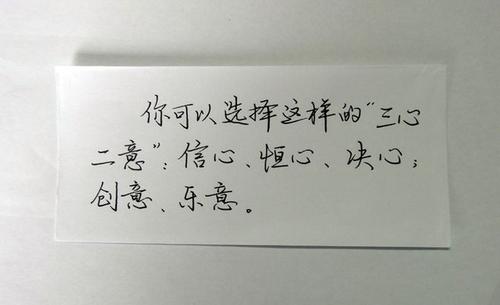 你可以选择这样的“三心
二意”：信心、恒心、决心；
创意、乐意。